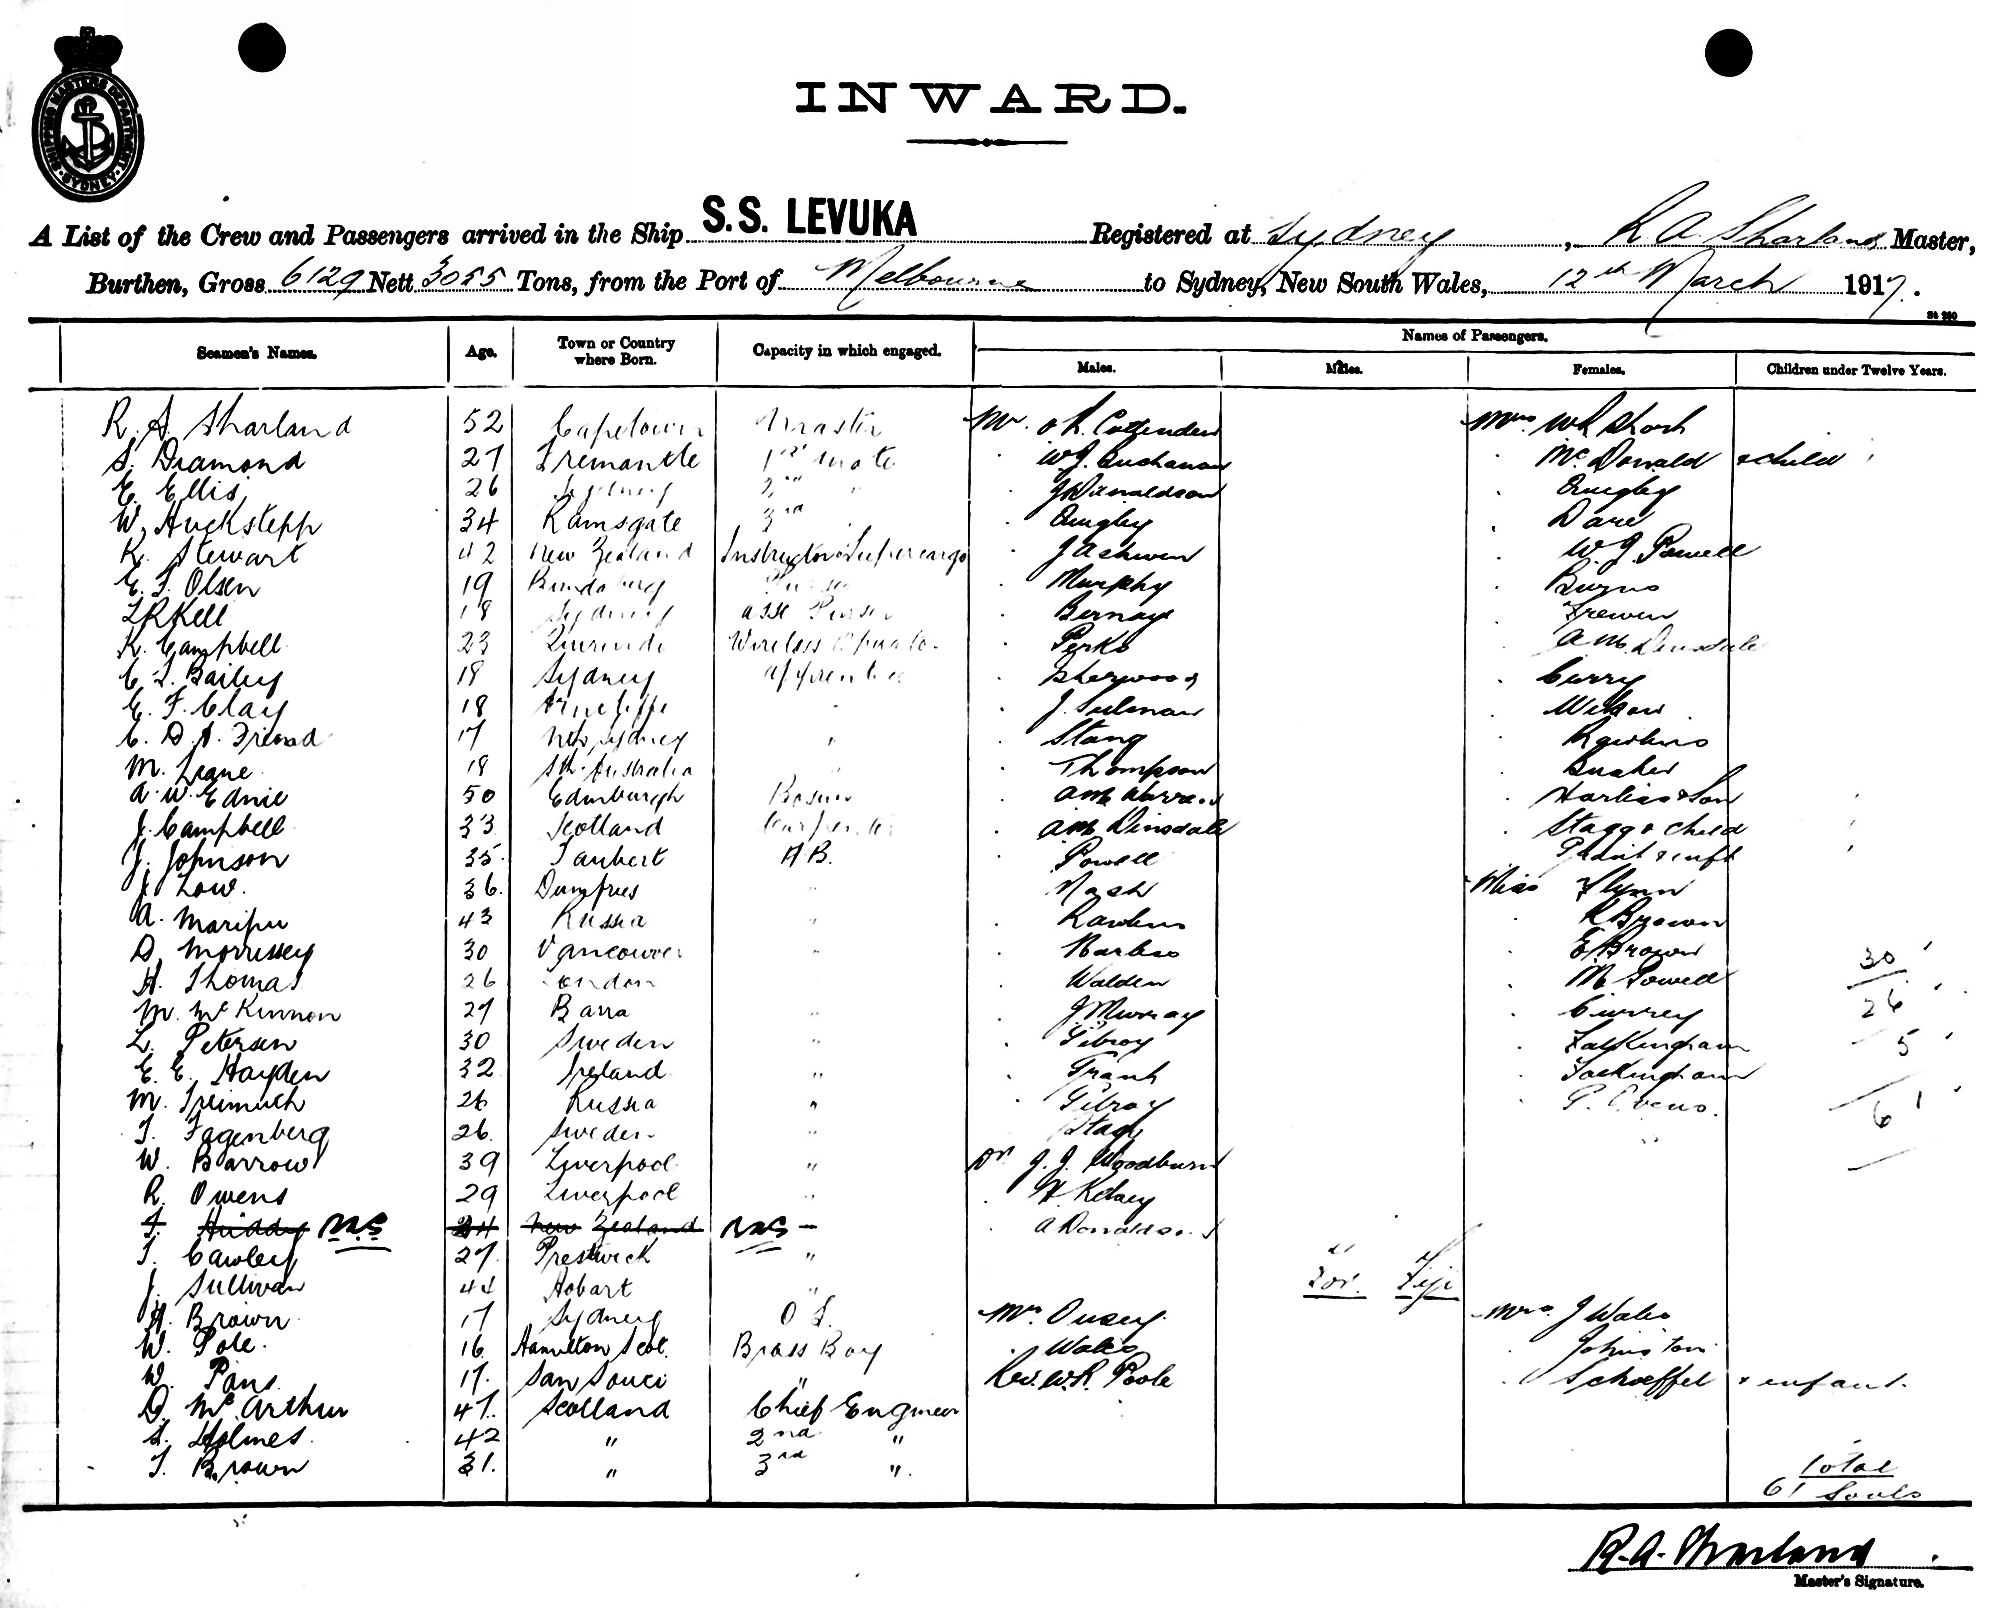 INWARD.
SHIPPING MASTERS DEPARTMENT
SYDNEY
A List of the Crew and Passengers arrived in the Ship S.S. LEVUKA Registered at Sydney, R A Sharland Master,
Burthen, Gross 6129 Nett 3055 Tons, from the Port of Melbourne to Sydney, New South Wales, 12th March 1917.
Seamen's Names. Age. Town or Country where Born. Capacity in which engaged. Names of Passengers.
Males. Males. Females. Children under Twelve Years.
R. A. Sharland 52 Capetown Master Mr. Cottenden Mrs W R Short
S. Diamond 27 Fremantle 1st Mate W J. Buchanan McDonald & child
E. Ellis 26 Sydney 2nd " J Donaldson Quigley
W. Huckstepp 34 Ramsgate 3rd Quigley Dare
R. Stewart 42 New Zealand Instructor & Supercargo J Ashwin W. J. Powell
E. F. Olsen 19 Bundaberg Purser Murphy Burns
L R Kell 18 Sydney asst Purser Bernays Frewen
K. Campbell 23 Quirindi Wireless Operator Perks A M. Dinsdale
C. L. Bailey 18 Sydney apprentice Sherwood Curry
E. F. Clay 18 Arncliffe " J. Sulman Wilson
C. D. A. Friend 17 Nth Sydney " Stang Rawlins
M. Lrane 18 Sth. Australia " Thompson Busher
A. W. Ednie 50 Edinburgh Bosun A M Warren Harliss & Son
J. Campbell 33 Scotland Carpenter A M Dinsdale Stagg & child
J. Johnson 35 Taubert A B. Powell & inft
J. Low. 36. Dumfries " Nash Miss Flynn
A. Maripu 43 Russia " Rawlins R Brown
D. Morrissey 30 Vancouver " Harliss E Brown
H. Thomas 26 London Walden M Powell 30
M. McKinnon 27 Barra " J Murray Currey 26
L. Petersen 30 Sweden " Gilroy Falkingham 5
E. E. Hayden 32 Ireland " Grant Falkingham
M. Treimuch 26 Russia " Gilroy P. Evens. 6
T. Fagenberg 26. Sweden " Stag
W. Barrow 39 Liverpool " Dr J. J. Woodburn
R. Owens 29 Liverpool " H Kelsey
T. Huddy RAS 24 New Zealand RAS - A Donaldson
T. Cawley 27. Prestwick "
J. Sullivan 44 Hobart " For Fiji
H. Brown 17 Sydney O S. Mr. Ousey. Mrs J Wales
W. Pole. 16 Hamilton Scot. Brass Boy Wales Johnston
W. Pans. 17. San Souci " Rev. W. R. Poole Schoeffel & infant.
D. McArthur 47. Scotland Chief Engineer
L. Holmes. 42 " 2nd "
T. Brown 31. " 3rd ".
Total
61 Souls
R. A. Sharland
Master's Signature.